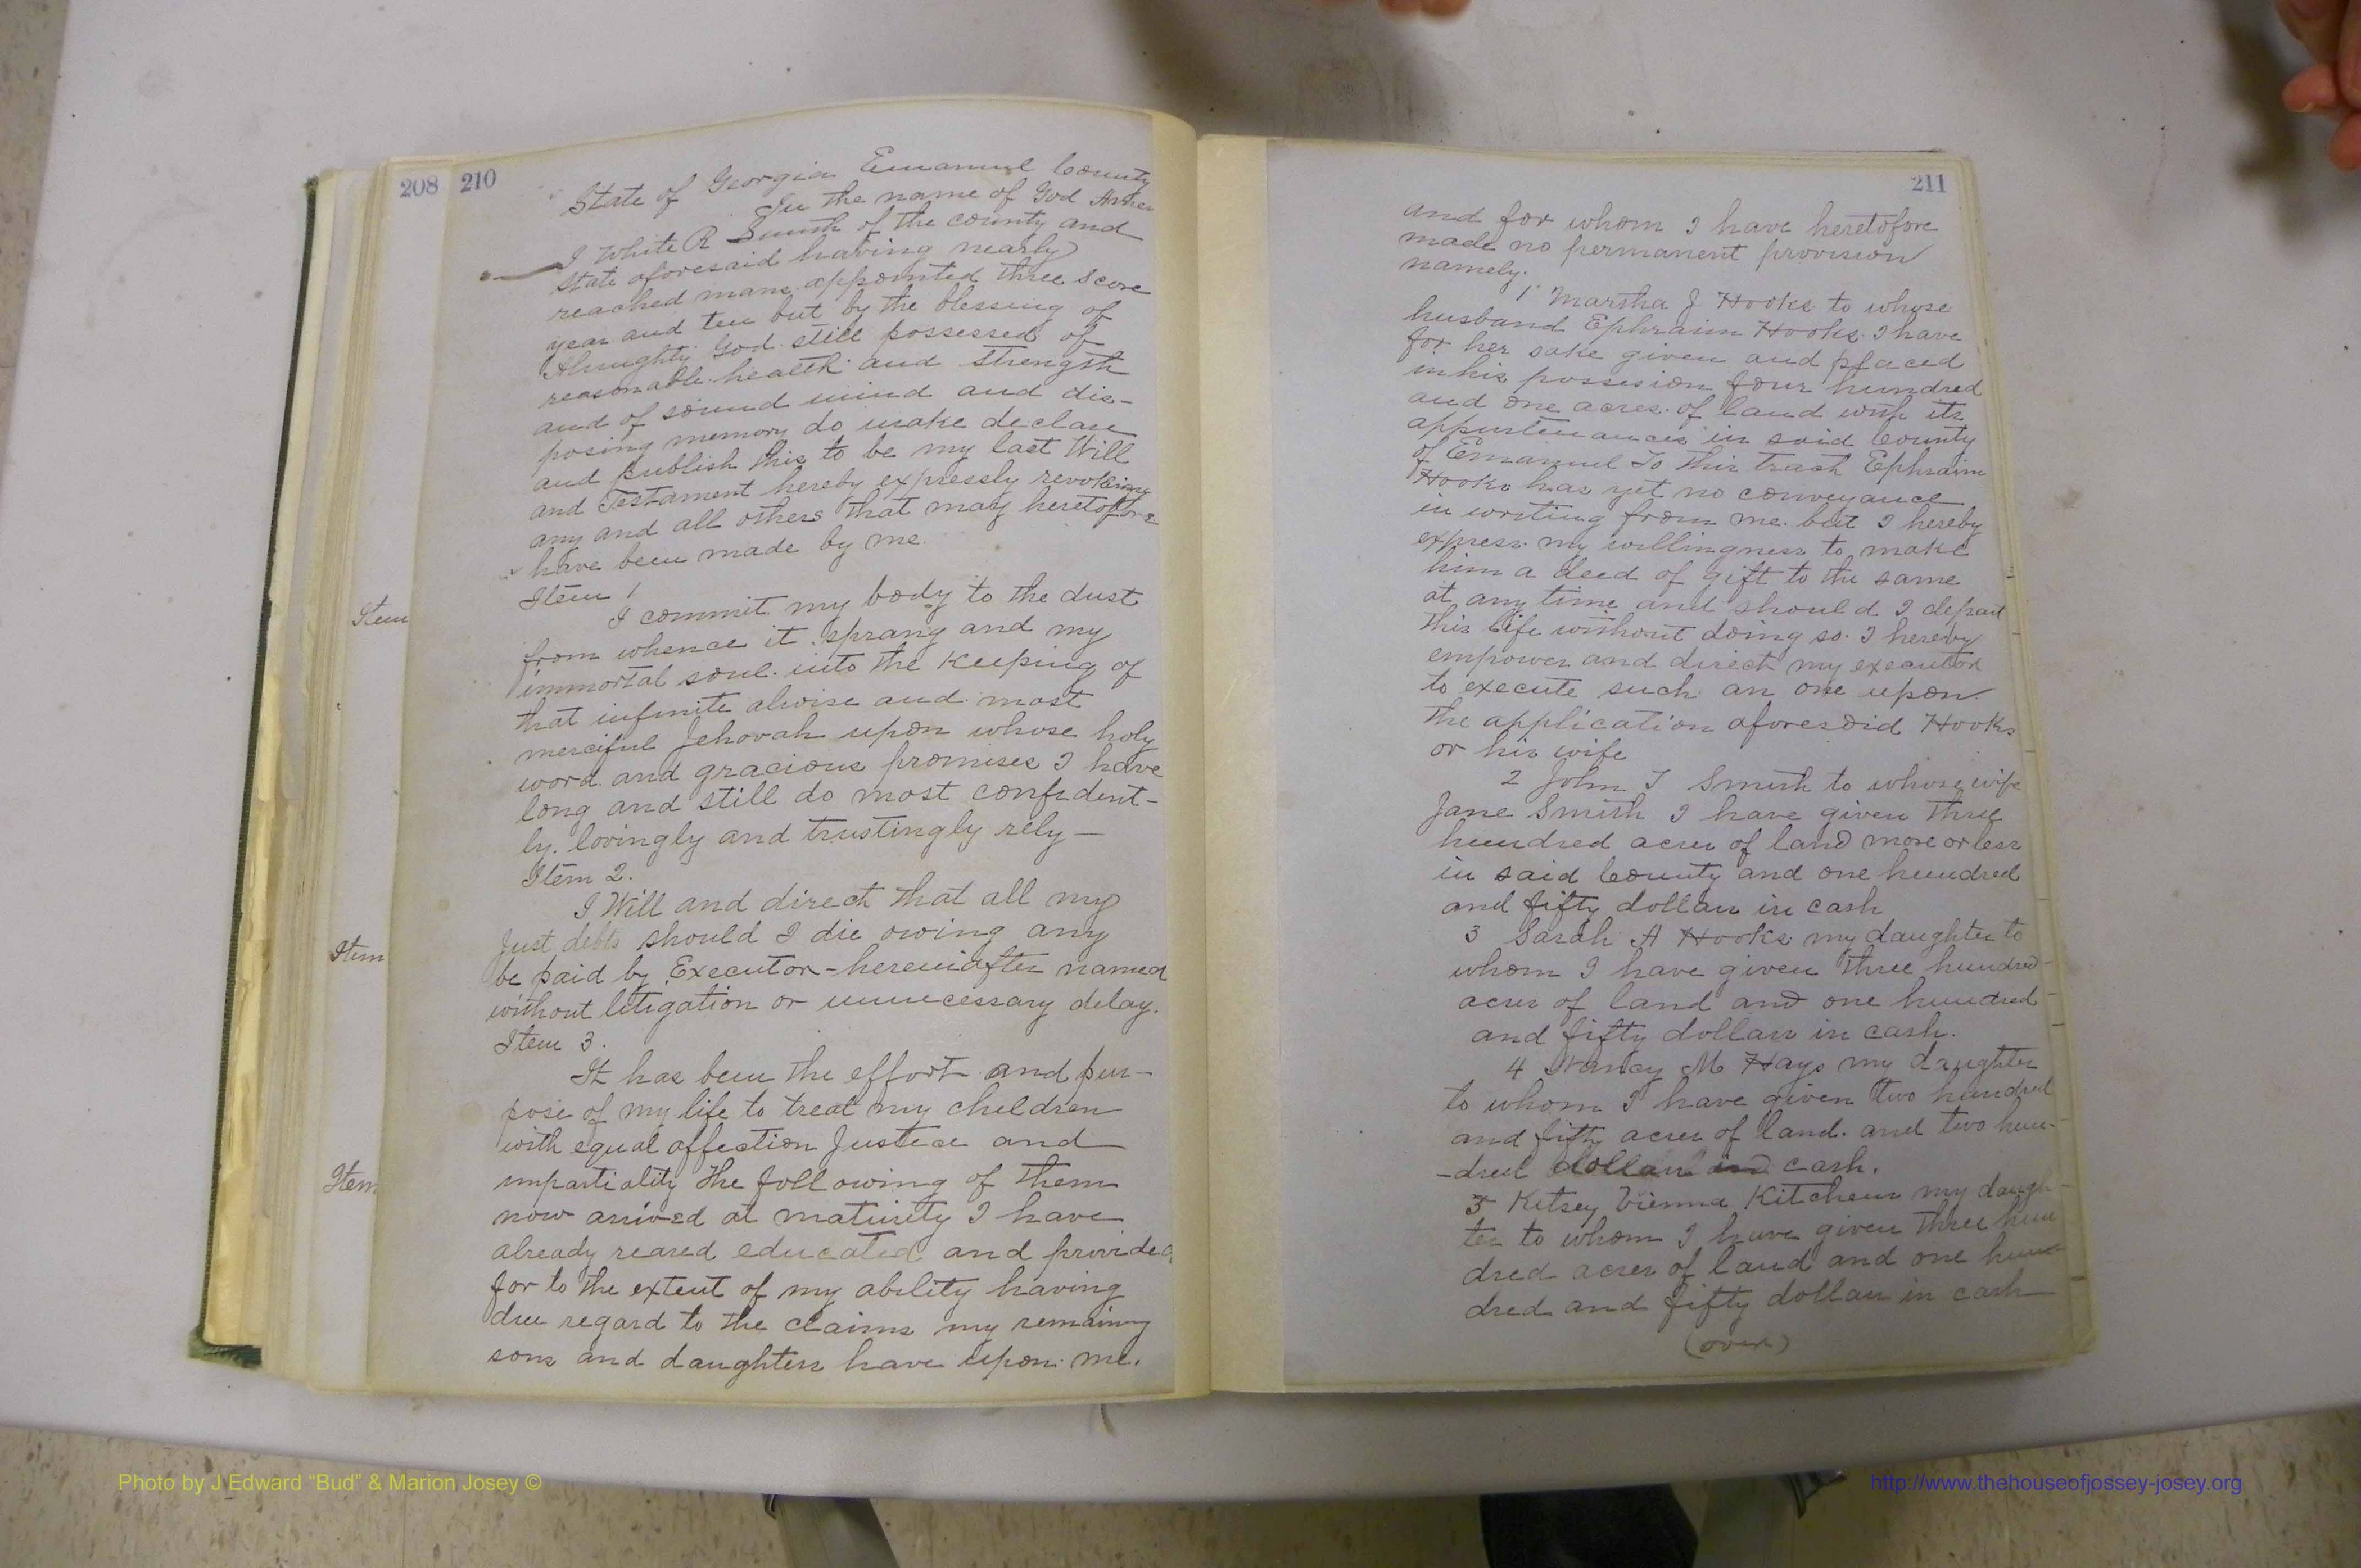 208
Item
Item
Item
210
State of Georgia Emanuel County
In the name of God Amen
I White R Smith of the county and
state aforesaid having nearly
reached mans appointed three score
year and ten but by the blessing of
Almighty God still possessed of
reasonable health and strength
and of sound mind and dis-
posing memory do make declare
and publish this to be my last Will
and Testament hereby expressly revoking
any and all others that may heretofore
have been made by me.
Item 1
I commit my body to the dust
from whence it sprang and my
immortal soul into the keeping of
that infinite alwise and most
merciful Jehovah upon whose holy
word and gracious promises I have
long and still do most confident-
ly. lovingly and trustingly rely —
Item 2.
I Will and direct that all my
Just debts should I die owing any
be paid by Executor - hereinafter named
without litigation or unnecessary delay.
Item 3.
It has been the effort and pur-
pose of my life to treat my children
with equal affection Justice and
impartiality The following of them
now arrived at maturity I have
already reared educated and provided
for to the extent of my ability having
due regard to the claims my remaining
sons and daughters have upon me.
211
and for whom I have heretofore
made no permanent provision
namely.
1 Martha J Hooks to whose
husband Ephraim Hooks I have
for her sake given and placed
in his possesion four hundred
and one acres of land with its
appurtenances in said County
of Emanuel To this tract Ephraim
Hooks has yet no conveyance
in writing from me. but I hereby
express my willingness to make
him a deed of gift to the same
at any time and should I depart
this life without doing so. I hereby
empower and direct my executor
to execute such an one upon
the application aforesaid Hooks
or his wife
2 John T Smith to whose wife
Jane Smith I have given three
hundred acres of land more or less
in said County and one hundred
and fifty dollars in cash
3 Sarah A Hooks my daughter to
whom I have given three hundred
acres of land and one hundred
and fifty dollars in cash.
4 Nancy M Hays my daughter
to whom I have given two hundred
and fifty acres of land. and two hun-
-dred dollars in cash.
5 Kitsey Vienna Kitchens my daugh-
ter to whom I have given three hun
dred acres of land and one hun-
dred and fifty dollars in cash
(over)
Photo by J Edward “Bud” & Marion Josey ©
http://www.thehouseofjossey-josey.org